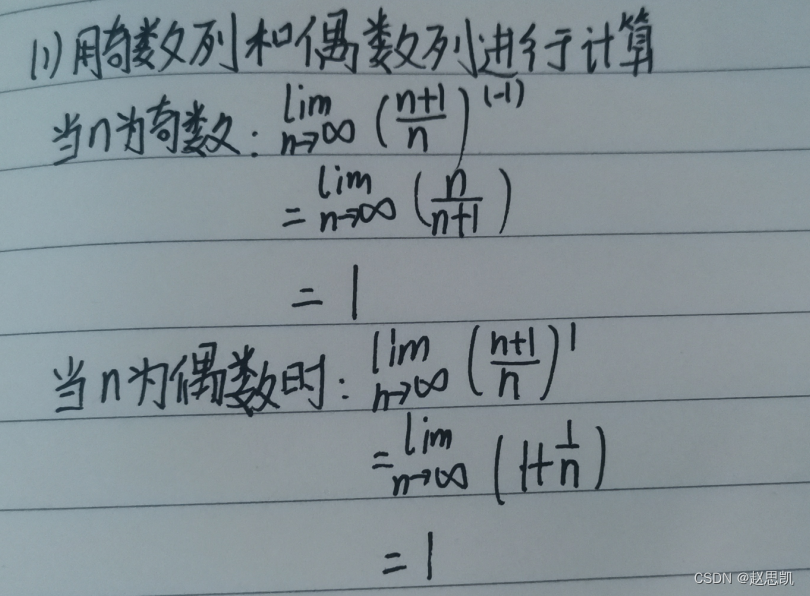 (1)用奇数列和偶数列进行计算
当n为奇数: lim n→∞ (n+1/n)^(-1)
= lim n→∞ (n/n+1)
= 1
当n为偶数时: lim n→∞ (n+1/n)^1
= lim n→∞ (1+1/n)
= 1
CSDN @赵思凯